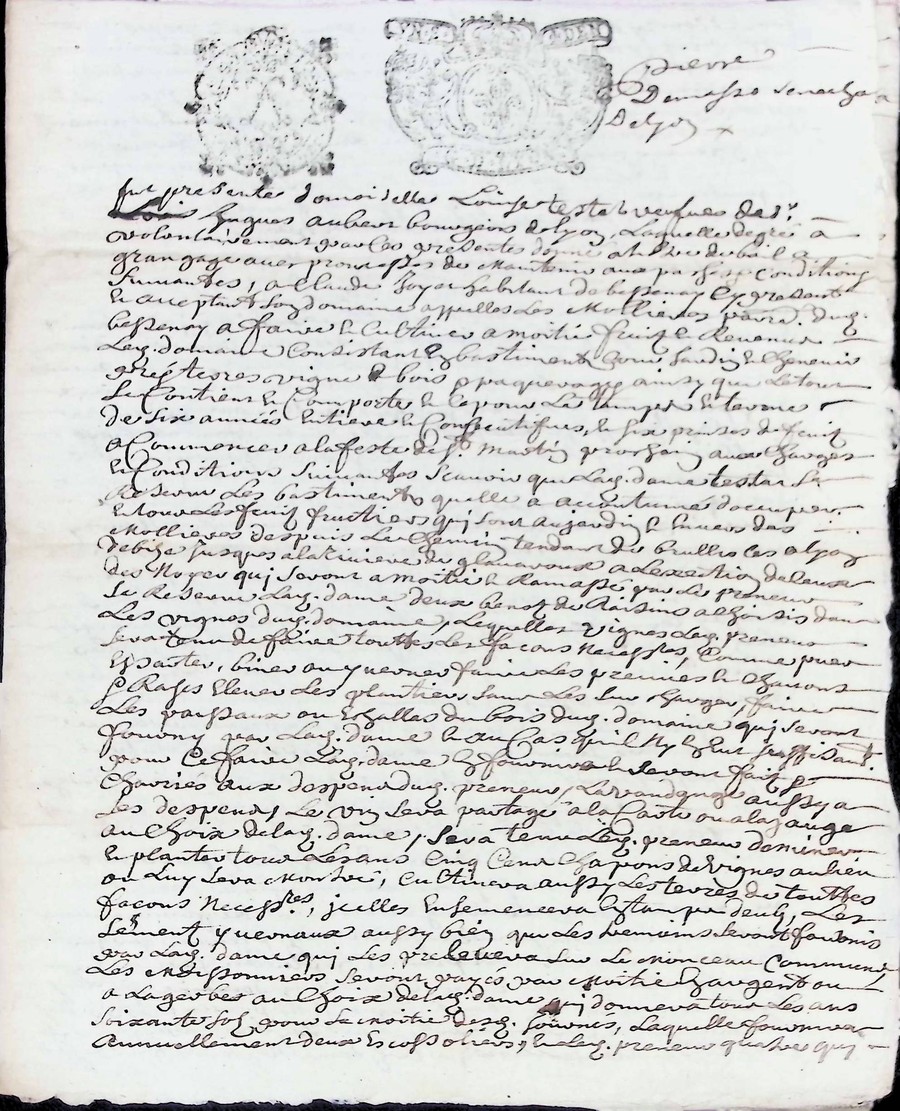 pierre
Demasso senechal
Delyon
fut presente damoiselle Louise testar vefues de sr
hugues aubert bourgeois de lyon, Laquelle de gré a
volontairement par Ces presentes donne a tiltre de bail a
grangage auec promesses de Maintenir aux pa Conditions
Suiuantes, a Claude soyer habitant de bessenay Icy present
et aceptant son domaine appellés Les Mollieres parr. dud.
bessenay a faire et Cultiuer a moitié fruit et Reuenus
Led. domaine Consistant En bastiments Cour Jardin et Cheneuis
prés terres vigne et bois paquerages ainsy que Letout
Se Contient et Comporte et Ce pour Le temps et terme
de Six années Entieres et Consecutifues, et six prinses de fruit
a Commencer a la feste de St Martin prochain aux Charges
et Conditions Suiuantes Scauoir que Lad. dame testar Se
Reserue Les bastiments quelle a accoutumé doccuper
et tous Les fruits fruitiers qui sont au Jardin et
Mollieres despuis Le Chemin tendant de brullioles a lyon
de bize Jusques a la riuiere de a Lexception de Ceux
des Noyer qui seront a moitié et Ramassé par Le preneur
Se Reserue Lad. dame deux benot de Raisins a Choisir dans
Les vignes dud. domaine, Lesquelles vignes Led. preneur
sera tenu de faire touttes Les facons Necessres, Comme puer
Essarter, biner ou yuerner faire Les preuins et Chacons
Rases Eleuer Les plantiers sans Les sur Charger, faire
Les paisseaux ou Echallas du bois dud. domaine qui seront
fourny par Lad. dame et au Cas quil Ny En Eut suffisant.
pour Ce faire Lad. dame En fournira et seront fait
Charriés aux despens dud. preneur, La vandange aussy a
Ses despens, Le vin sera partagé a la Carte ou a la Jauge
au Choix de lad. dame, sera tenu Led. preneur de miner
et planter tous Les ans Cinq Cent Chapons de vignes au lieu
ou Luy sera Montré, Cultiuera aussy Les terres de touttes
facons Necessres, jcelles Ensemencera En tamps deub, Les
sement yuernaux aussy bien que Les tremois seront fournis
par Lad. dame qui Les preleuera sur Le Monceau Commun
Les Moissonniers seront payés par Moitié En argent ou
a La gerbes au Choix de lad. dame qui donnera tous Les ans
soixante sols pour sa moitié desd. Laquelle fournira
Annuellement deux Escossoliers, et Led. preneur quatre qui